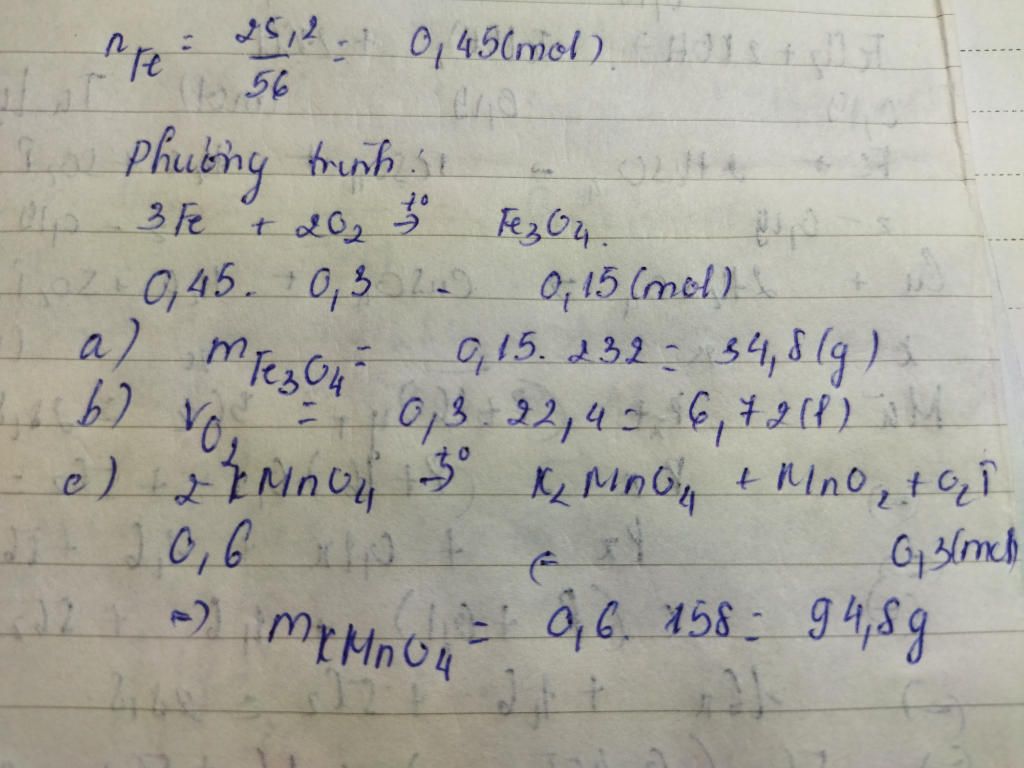 n_Fe = 25,2/56 = 0,45(mol).
Phương trình:
3Fe + 2O₂ →t° Fe₃O₄.
0,45. 0,3 - 0,15(mol)
a) m_Fe₃O₄ = 0,15. 232 = 34,8(g)
b) V_O₂ = 0,3 22,4 = 6,72(l)
c) 2 KMnO₄ →t° K₂MnO₄ + MnO₂ + O₂↑
0,6 ← 0,3(mol)
=) m_KMnO₄ = 0,6. 158 = 94,8g